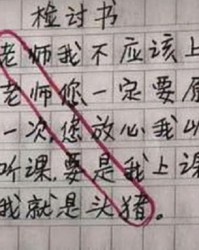 检讨书
老师我不应该上
老师您一定要原
一次,您放心我以
听课,要是我上课
我就是头猪。